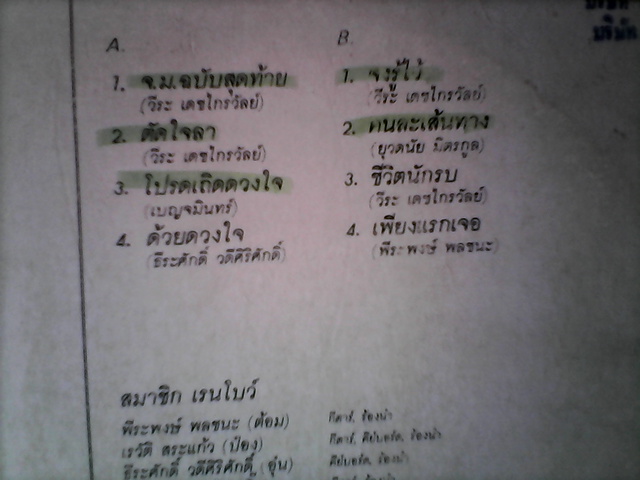 A.
1. จ.ม.ฉบับสุดท้าย
(วีระ เดชไกรวัลย์)
2. ตัดใจลา
(วีระ เดชไกรวัลย์)
3. โปรดเถิดดวงใจ
(เบญจมินทร์)
4. ด้วยดวงใจ
(ธีระศักดิ์ วดีศิริศักดิ์)
B.
1. จงรู้ไว้
(วีระ เดชไกรวัลย์)
2. คนละเส้นทาง
(ยุวดนัย มิตรกูล)
3. ชีวิตนักรบ
(วีระ เดชไกรวัลย์)
4. เพียงแรกเจอ
(พีระพงษ์ พลชนะ)
สมาชิก เรนโบว์
พีระพงษ์ พลชนะ (ต้อม) กีตาร์, ร้องนำ
เรวัติ สระแก้ว (ป๋อง) กีตาร์, คีย์บอร์ด, ร้องนำ
ธีระศักดิ์ วดีศิริศักดิ์ (อุ๋น) คีย์บอร์ด, ร้องนำ
บริษัท